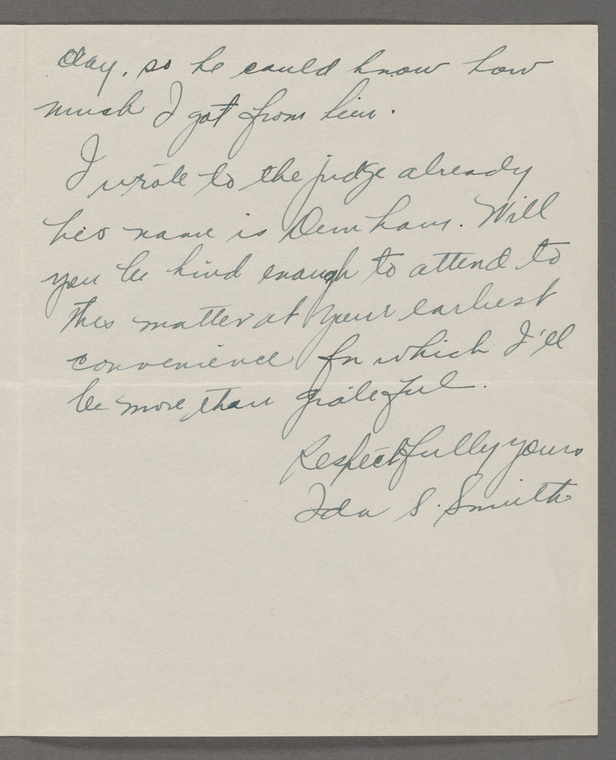 day, so he could know how
much I got from him.
I wrote to the judge already
his name is Denham. Will
you be kind enough to attend to
this matter at your earliest
convenience for which I'll
be more than grateful.
Respectfully yours
Ida S. Smith